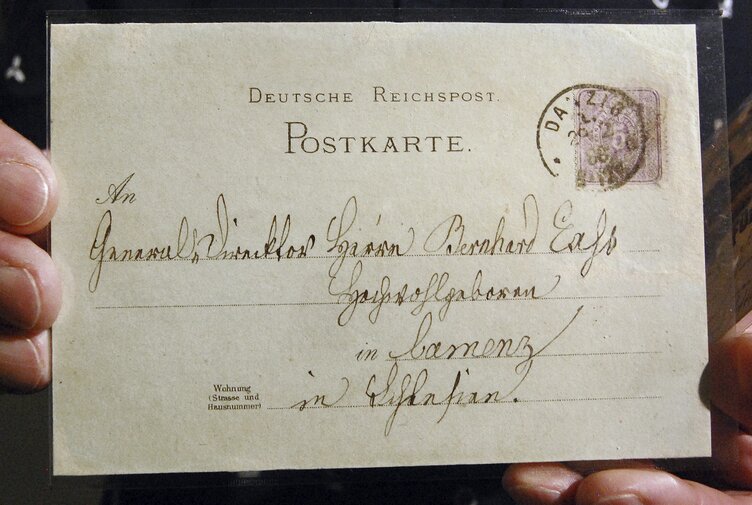 DEUTSCHE REICHSPOST.
POSTKARTE.
DANZIG
An
General-Direcktor Herrn Bernhard
Hochwohlgeboren
in Camenz
Wohnung
(Strasse und
Hausnummer)
in Schlesien.